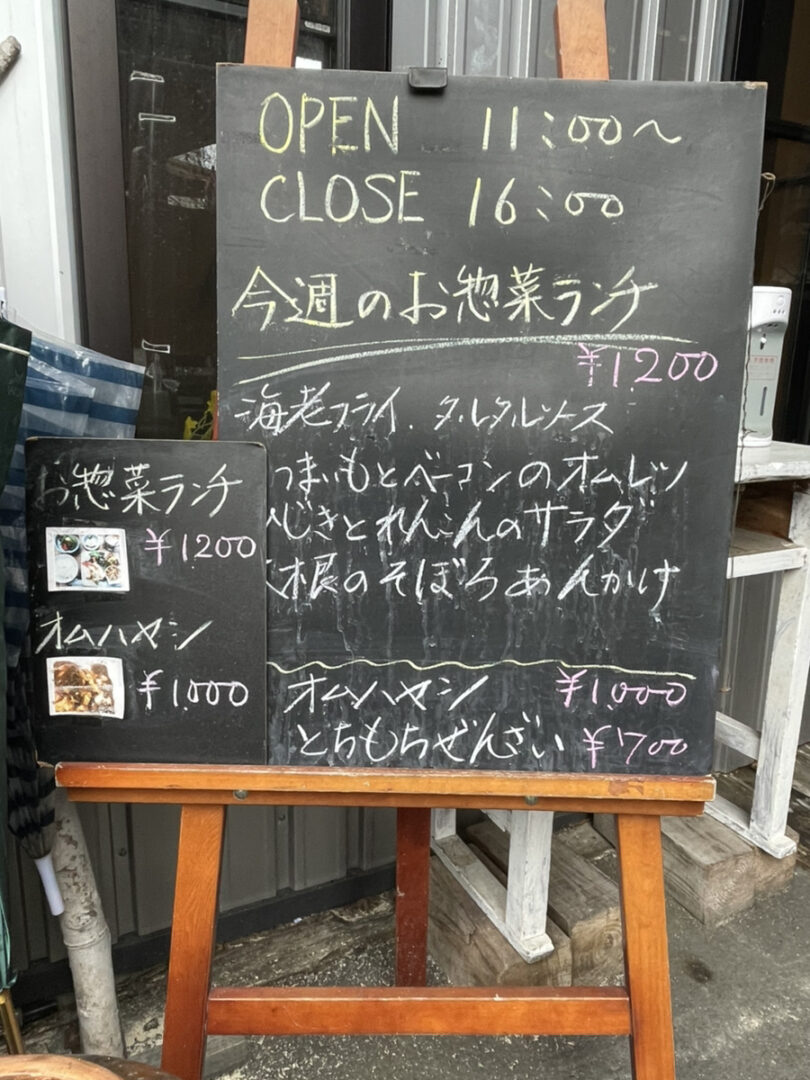 OPEN 11:00～
CLOSE 16:00
今週のお惣菜ランチ
¥1.200
海老フライ.タルタルソース
つまいもとベーコンのオムレツ
じきとれんこんのサラダ
根のそぼろあんかけ
オムハヤシ ¥1.000
とちもちぜんざい ¥700
お惣菜ランチ
¥1.200
オムハヤシ
¥1.000